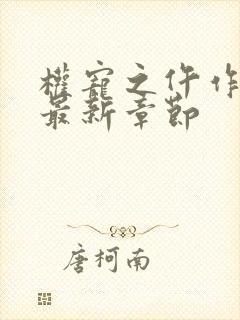 權寵之仵作
最新章節
唐柯南